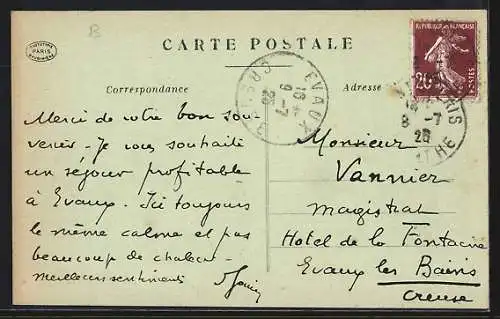 B
PARIS
CARTE POSTALE
REPUBLIQUE FRANÇAISE
20c
POSTES
EVAUX
CREUSE
16
9-7
26
PARIS
8-7
26
Correspondance
Adresse
Merci de votre bon sou-
venir - Je vous souhaite
un séjour profitable
à Evaux. Ici toujours
le même calme et pas
beaucoup de chaleur
meilleurs sentiments
Monsieur
Vannier
magistrat
Hotel de la Fontaine
Evaux les Bains
Creuse